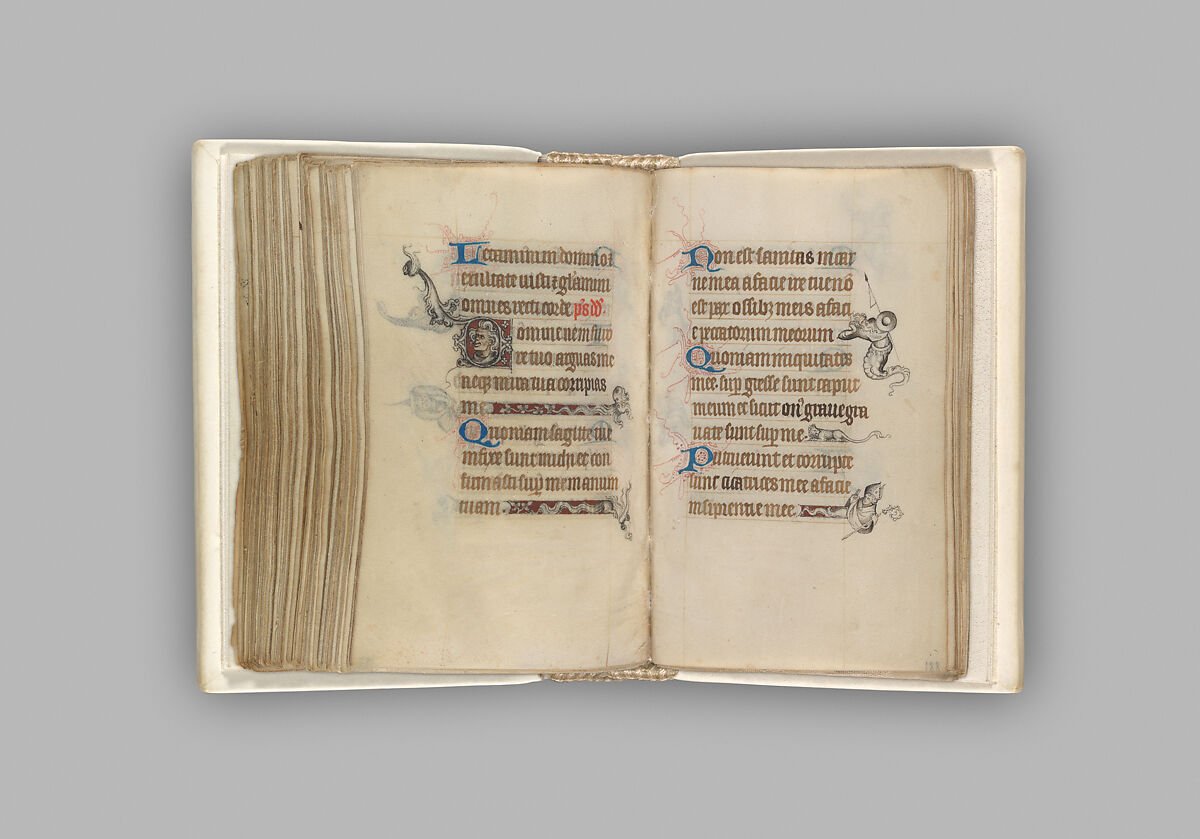 Letamini in domino &
exultate iusti & glamini
omnes recti corde ps dd.
Domine ne in furo
re tuo arguas me
neq3 in ira tua corripias
me
Quoniam sagitte tue
infixe sunt michi et con
firmasti sup me manum
tuam.
Non est sanitas in car
ne mea a facie ire tue nō
est pax ossib3 meis a faci
e peccatorum meorum
Quoniam iniquitates
mee sup gresse sunt caput
meum et sicut on' graue gra
uate sunt sup me
Putruerunt et corrupte
sunt cicatrices mee a facie
insipientie mee.
188